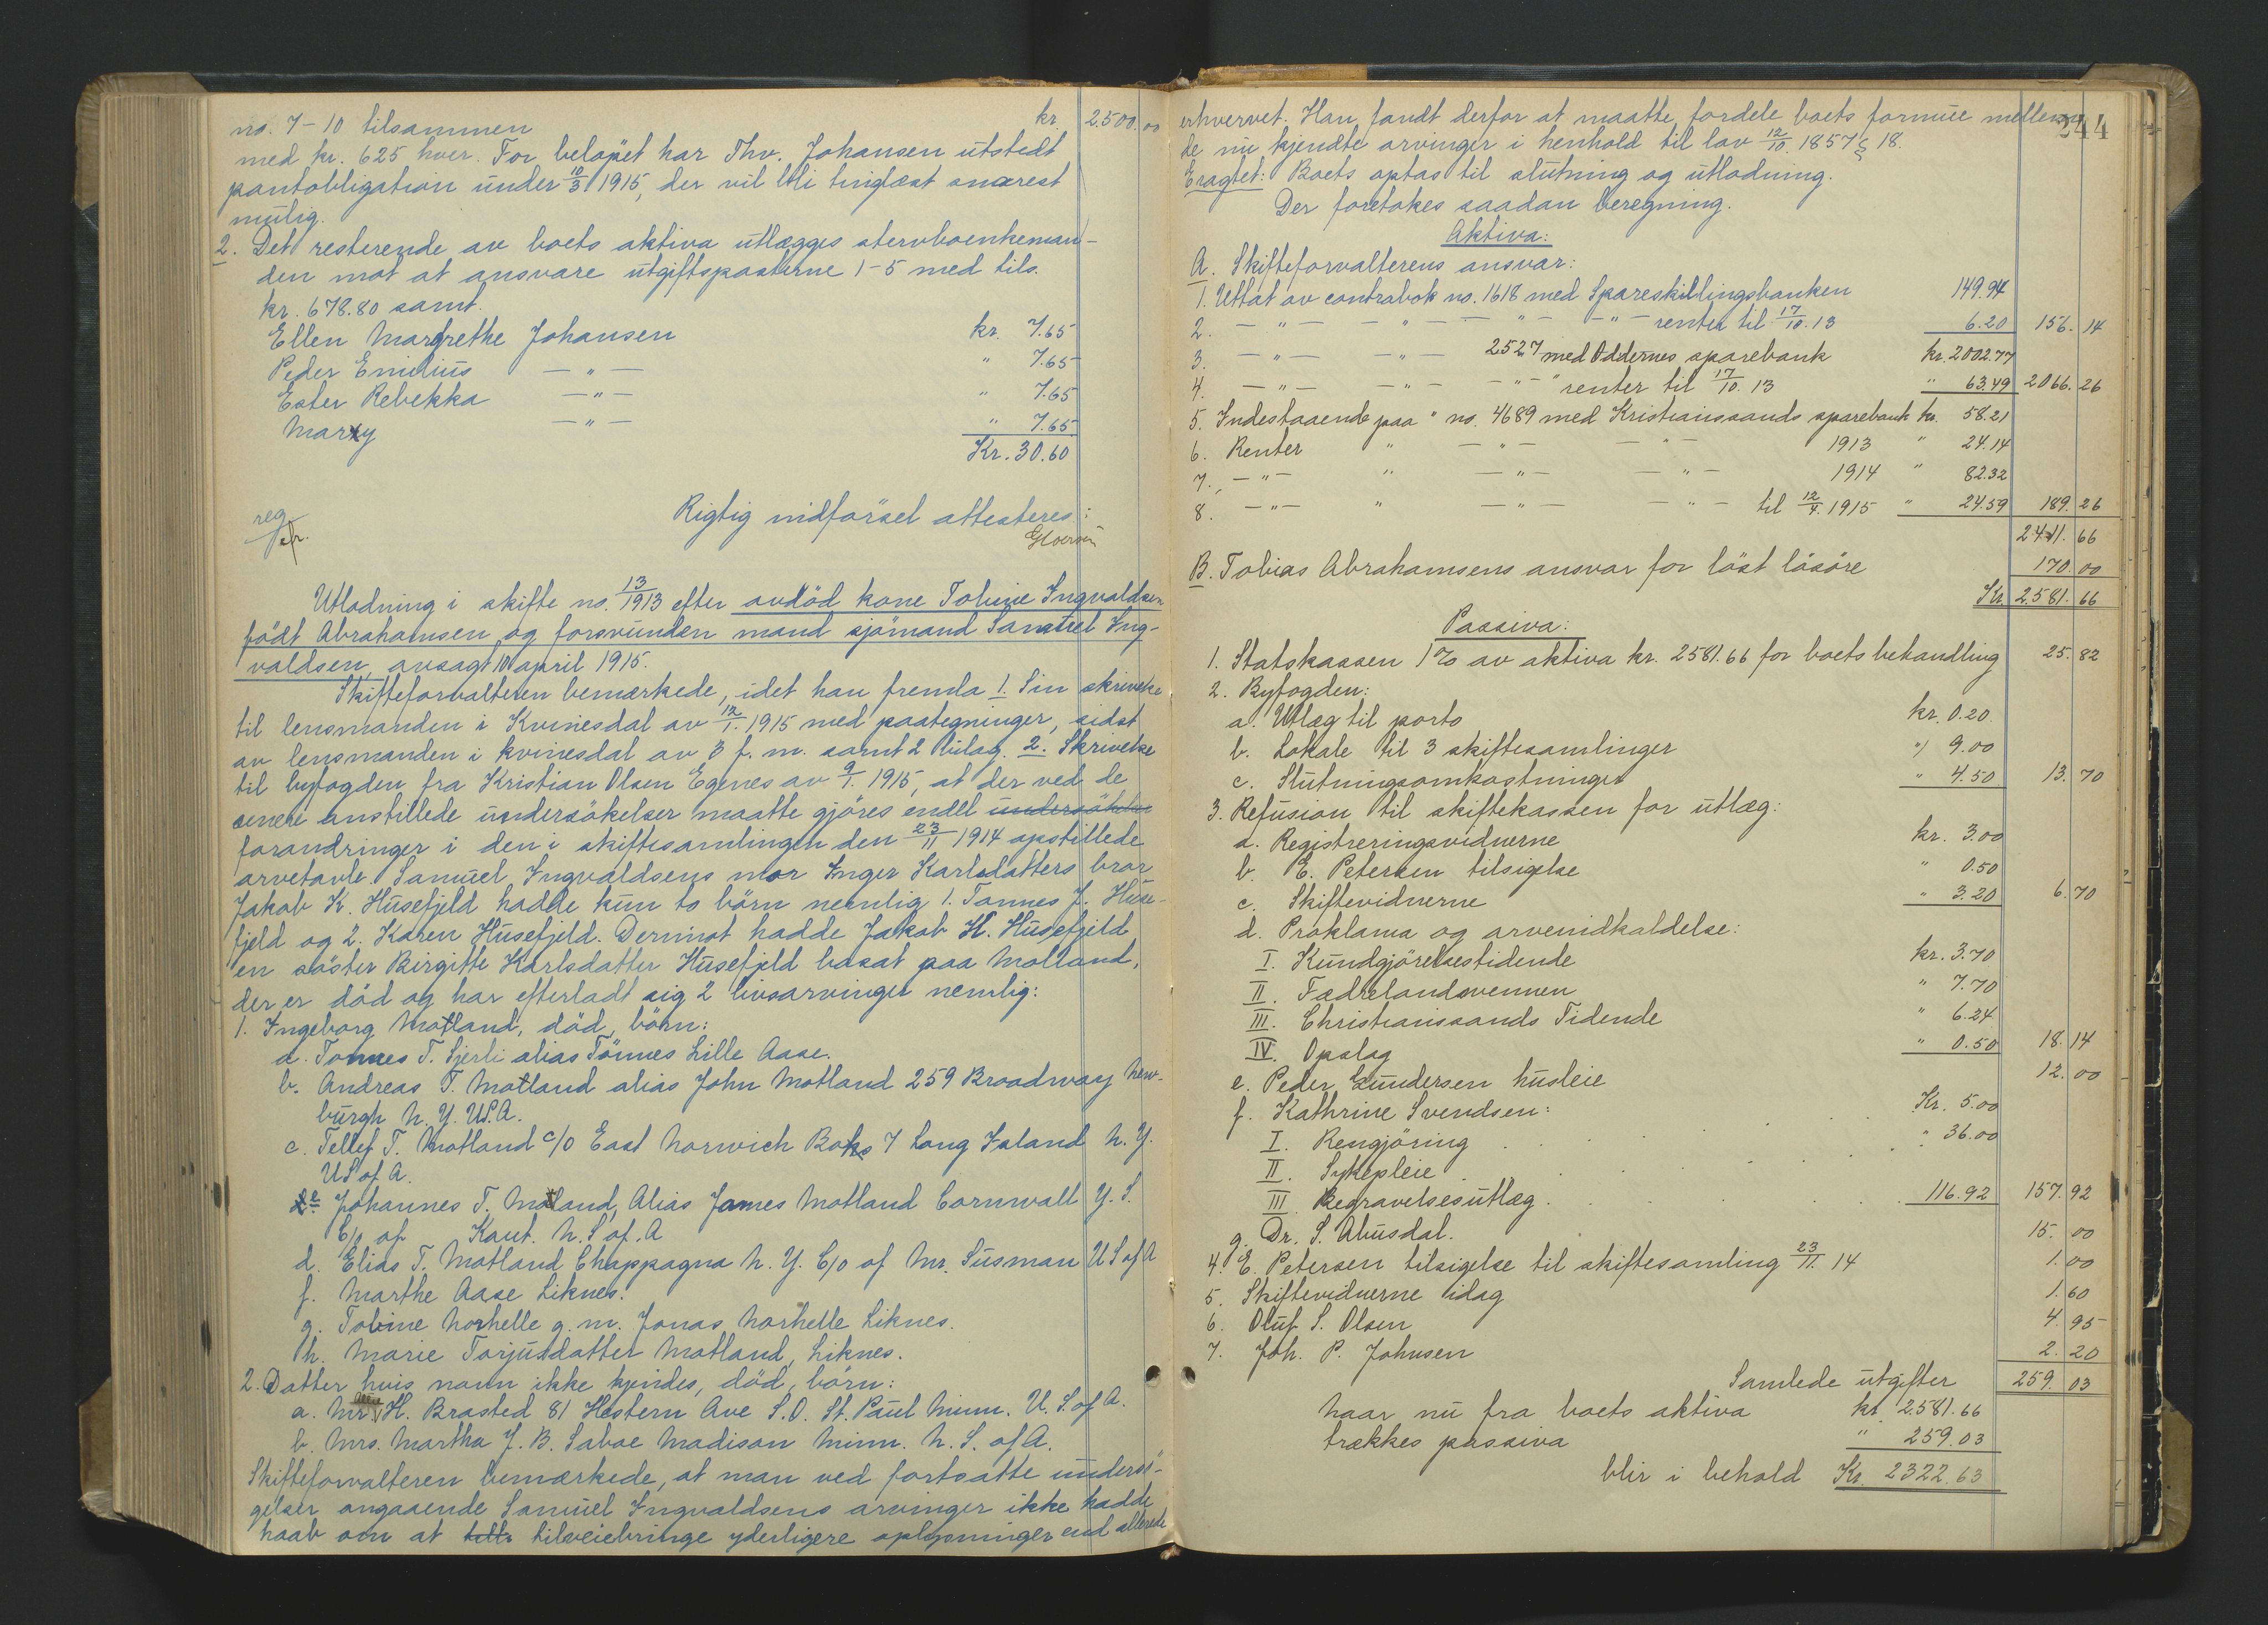 no. 7-10 tilsammen kr. 2.500.00
med kr. 625 hver. For beløpet har Thv. Johansen utstedt
pantobligation under 10/3 1915, der vil bli tinglæst snarest
mulig.
2. Det resterende av boets aktiva utlægges stervboenkeman-
den mot at ansvare utgiftsposterne 1-5 med tils.
kr. 678.80 samt.
Ellen Margrethe Johansen kr. 7.65
Peder Emilius -"- " 7.65
Ester Rebekka -"- " 7.65
Marxy -"- " 7.65
Kr. 30.60
Rigtig indförsel attesteres:
reg
Utlodning i skifte no. 13/1913 efter avdöd kone Tobine Ingvaldsen
födt Abrahamsen og forsvunden mand sjömand Samuel Ing-
valdsen, avsagt 10 april 1915.
Skifteforvalteren bemærkede, idet han fremla 1. Sin skrivelse
til lensmanden i Kvinesdal av 12/1. 1915 med paategninger, sidst
av lensmanden i kvinesdal av 8 f. m. samt 2 bilag. 2. Skrivelse
til byfogden fra Kristian Olsen Egenes av 9/1. 1915, at der ved de
senere anstillede undersökelser maatte gjöres endel undersökelse
forandringer i den i skiftesamlingen den 23/11 1914 opstillede
arvetavle. Samuel Ingvaldsens mor Inger Karlsdatters bror
Jakob K. Husefjeld hadde kun to börn nemlig 1. Tonnes J. Huse-
fjeld og 2. Karen Husefjeld. Derimot hadde Jakob K. Husefjeld
en söster Birgitte Karlsdatter Husefjeld bosat paa Motland,
der er död og har efterladt sig 2 livsarvinger nemlig:
1. Ingeborg Motland, död, börn:
a. Tonnes T. Sjerli alias Tönnes Lille Aase.
b. Andreas T. Motland alias John Motland 259 Broadway New-
burgh N. Y. U.S.A.
c. Tellef T. Motland c/o East Norwich Boks 7 Long Island N. Y.
US of A.
e Johannes T. Motland, Alias James Motland Cornwall Y. S.
C/o of Kant. N. S of. A
d. Elias T. Motland Chappagna N. Y. C/o of Mr. Susman U S of A
f. Marthe Aase Liknes.
g. Tobine Norhelle g. m. Jonas Norhelle Liknes.
h. Marie Torjusdatter Motland, Liknes.
2. Datter hvis navn ikke kjendes, död, börn:
a. Mr. H. Brasted 81 Hestern Ave S.O. St. Paul Minn. U. S. of A.
b. Mrs. Martha J. B. Saboe Madison Minn. N. S. of A.
Skifteforvalteren bemærkede, at man ved fortsatte undersö-
gelser angaaende Samuel Ingvaldsens arvinger ikke hadde
haab om at tilveiebringe yderligere oplysninger end allerede
244
erhvervet. Han fandt derfor at maatte fordele boets formue mellem
de nu kjendte arvinger i henhold til lov 12/10. 1857 § 18.
Eragtet: Boets optas til slutning og utlodning.
Der foretokes saadan beregning.
Aktiva:
A. Skifteforvalterens ansvar:
1. Uttat av contrabok no. 1618 med Spareskillingsbanken 149.94
2. -"- -"- -"- -"- renter til 17/10. 13 6.20 156.14
3. -"- -"- 2527 med Oddernes sparebank kr. 2002.77
4. -"- -"- -"- " renter til 17/10. 13 " 63.49 2066.26
5. Indestaaende paa " no. 4689 med Kristianssands sparebank kr. 58.21
6. Renter " -"- -"- 1913 " 24.14
7. -"- " -"- -"- 1914 " 82.32
8. -"- " -"- -"- til 12/4. 1915 " 24.59 189.26
2411.66
B. Tobias Abrahamsens ansvar for löst lösöre 170.00
Kr. 2.581.66
Passiva:
1. Statskassen 1% av aktiva kr. 2581.66 for boets behandling 25.82
2. Byfogden:
a. Utlæg til porto kr. 0.20
b. Lokale til 3 skiftesamlinger " 9.00
c. Slutningsomkostninger " 4.50 13.70
3. Refusion til skiftekassen for utlæg:
a. Registreringsvidnerne kr. 3.00
b. E. Petersen tilsigelse " 0.50
c. Skiftevidnerne " 3.20 6.70
d. Proklama og arveindkaldelse:
I. Kundgjörelsestidende kr. 3.70
II. Fædrelandsvennen " 7.70
III. Christianssands Tidende " 6.24
IV. Opslag " 0.50 18.14
e. Peder Gundersen husleie 12.00
f. Kathrine Svendsen:
I. Rengjöring Kr. 5.00
II. Sykepleie " 36.00
III. Begravelsesutlæg 116.92 157.92
g. Dr. S. Abusdal. 15.00
4. E. Petersen tilsigelse til skiftesamling 23/11. 14 1.00
5. Skiftevidnerne idag 1.60
6. Oluf S. Olsen 4.95
7. Joh. P. Johnsen 2.20
Samlede utgifter 259.03
Naar nu fra boets aktiva kr. 2581.66
trækkes passiva " 259.03
blir i behold Kr. 2322.63